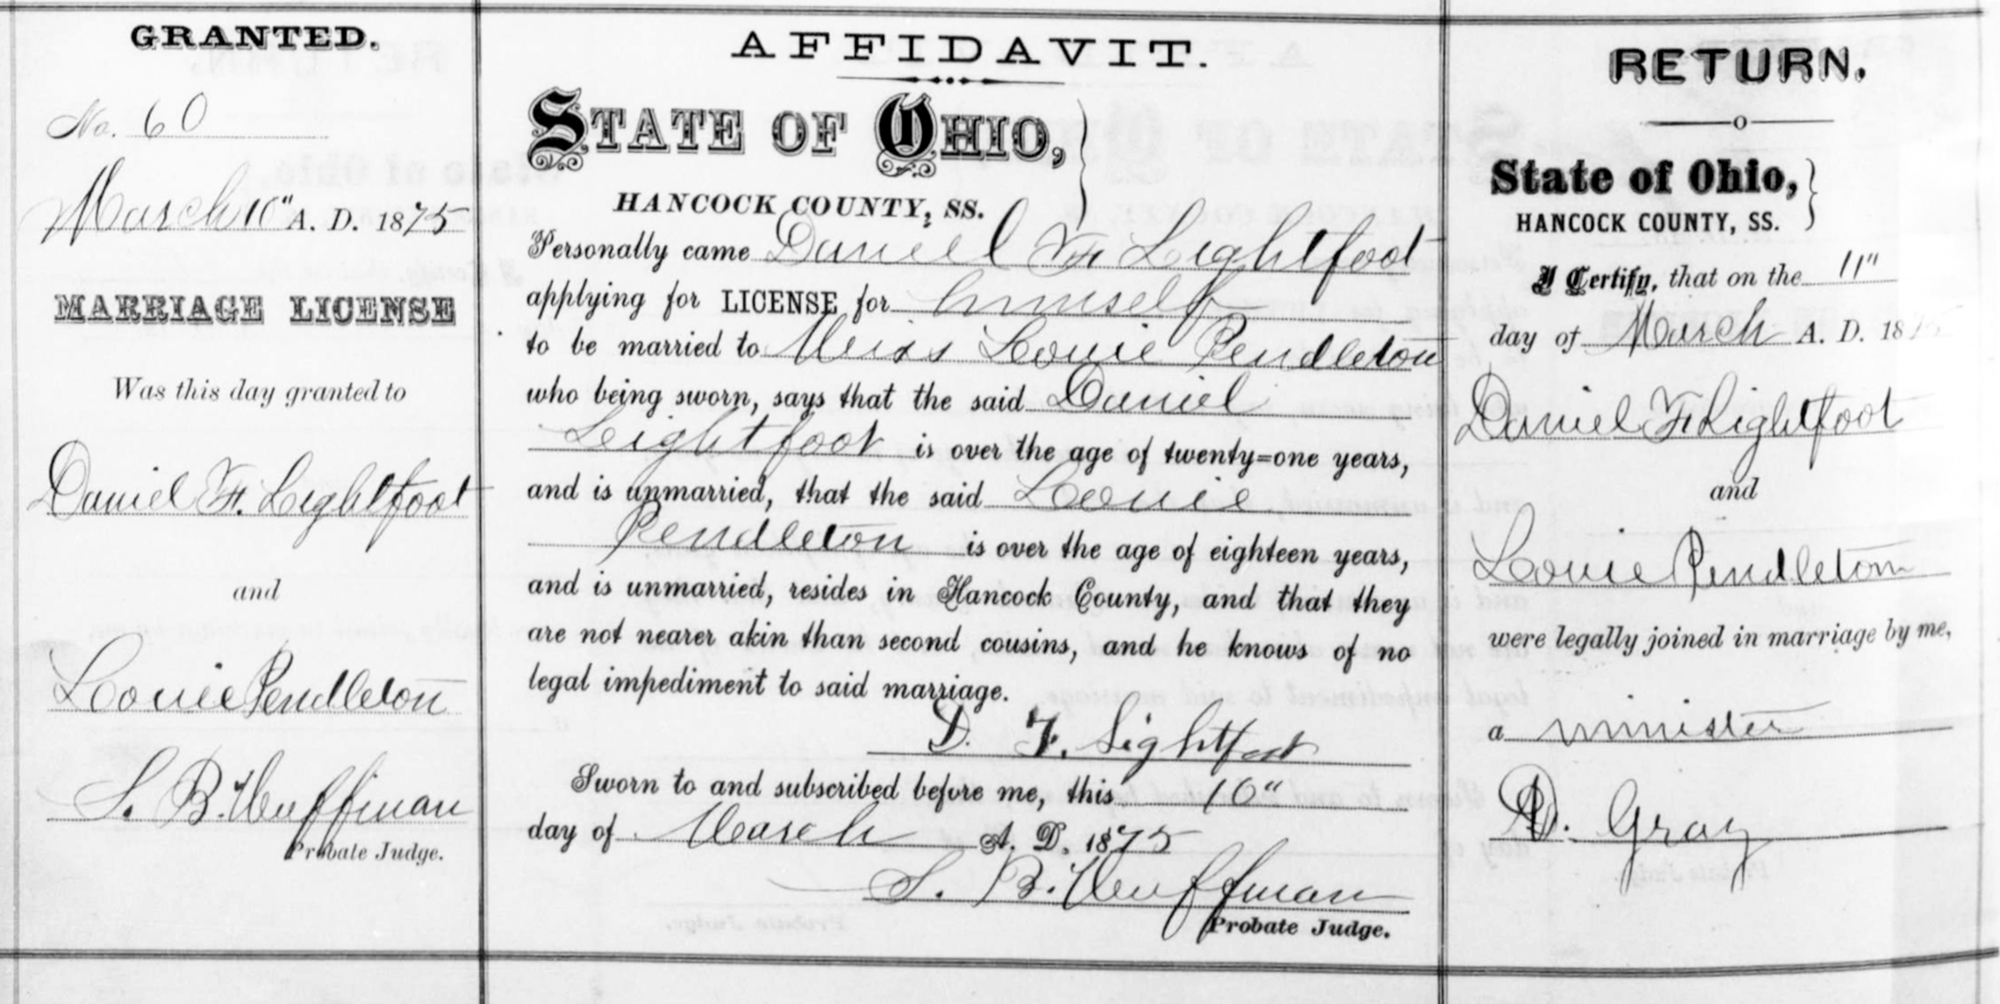 GRANTED.
No. 60
March 10" A. D. 1875
MARRIAGE LICENSE
Was this day granted to
Daniel F. Lightfoot
and
Louie Pendleton
S. B. Huffman
Probate Judge.
AFFIDAVIT.
STATE OF OHIO,
HANCOCK COUNTY, SS.
Personally came Daniel F. Leightfoot
applying for LICENSE for himself
to be married to Miss Louie Pendleton
who being sworn, says that the said Daniel
Leightfoot is over the age of twenty=one years,
and is unmarried, that the said Louie
Pendleton is over the age of eighteen years,
and is unmarried, resides in Hancock County, and that they
are not nearer akin than second cousins, and he knows of no
legal impediment to said marriage.
D. F. Lightfoot
Sworn to and subscribed before me, this 10"
day of March A. D. 1875
S. B. Huffman
Probate Judge.
RETURN.
State of Ohio,
HANCOCK COUNTY, SS.
I Certify, that on the 11"
day of March A. D. 1875
Daniel F Lightfoot
and
Louie Pendleton
were legally joined in marriage by me,
a minister
D. Gray